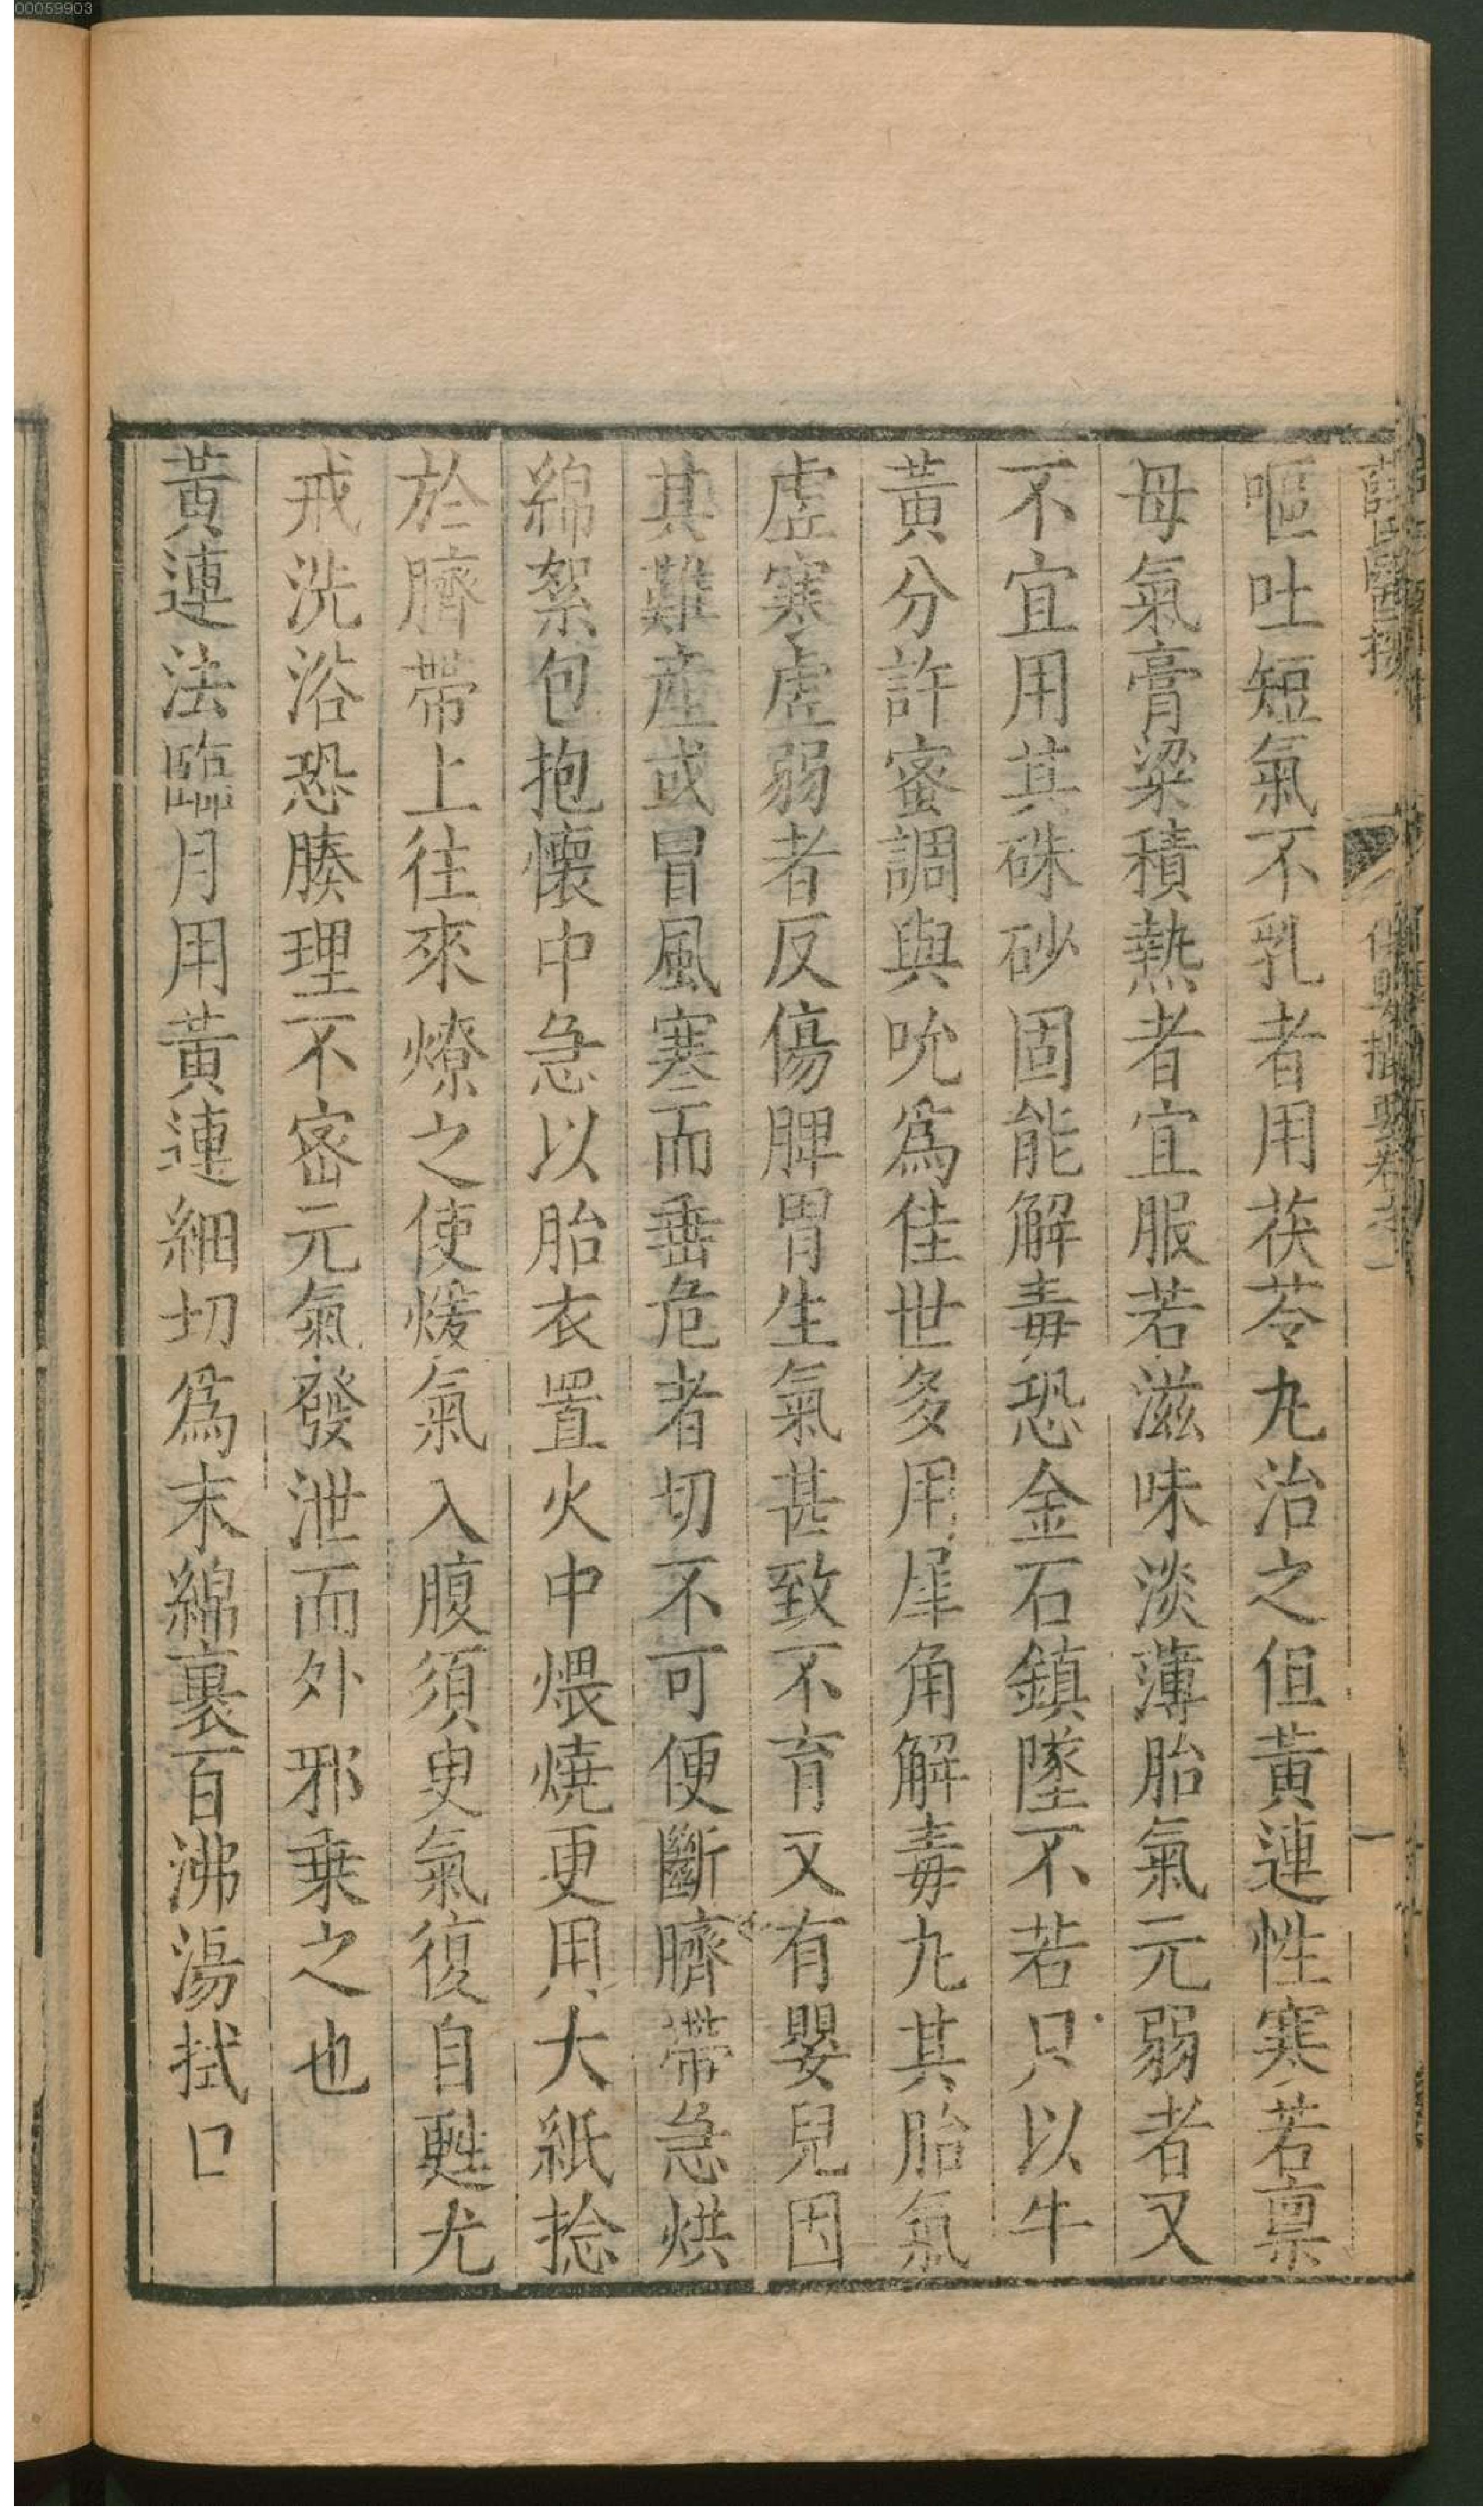 00059903
嘔吐短氣不乳者用茯苓丸治之但黃連性寒若禀
母氣膏粱積熱者宜服若滋味淡薄胎氣元弱者又
不宜用其硃砂固能解毒恐金石鎮墜不若只以牛
黃分許蜜調與吮爲佳世多用犀角解毒丸其胎氣
虛寒虛弱者反傷脾胃生氣甚致不育又有嬰兒因
其難產或冒風寒而垂危者切不可便斷臍帶急烘
綿絮包抱懷中急以胎衣置火中煨燒更用大紙捻
於臍帶上往來燎之使煖氣入腹須臾氣復自甦尤
戒洗浴恐腠理不密元氣發泄而外邪乗之也
黃連法臨月用黃連細切爲末綿裹百沸湯拭口